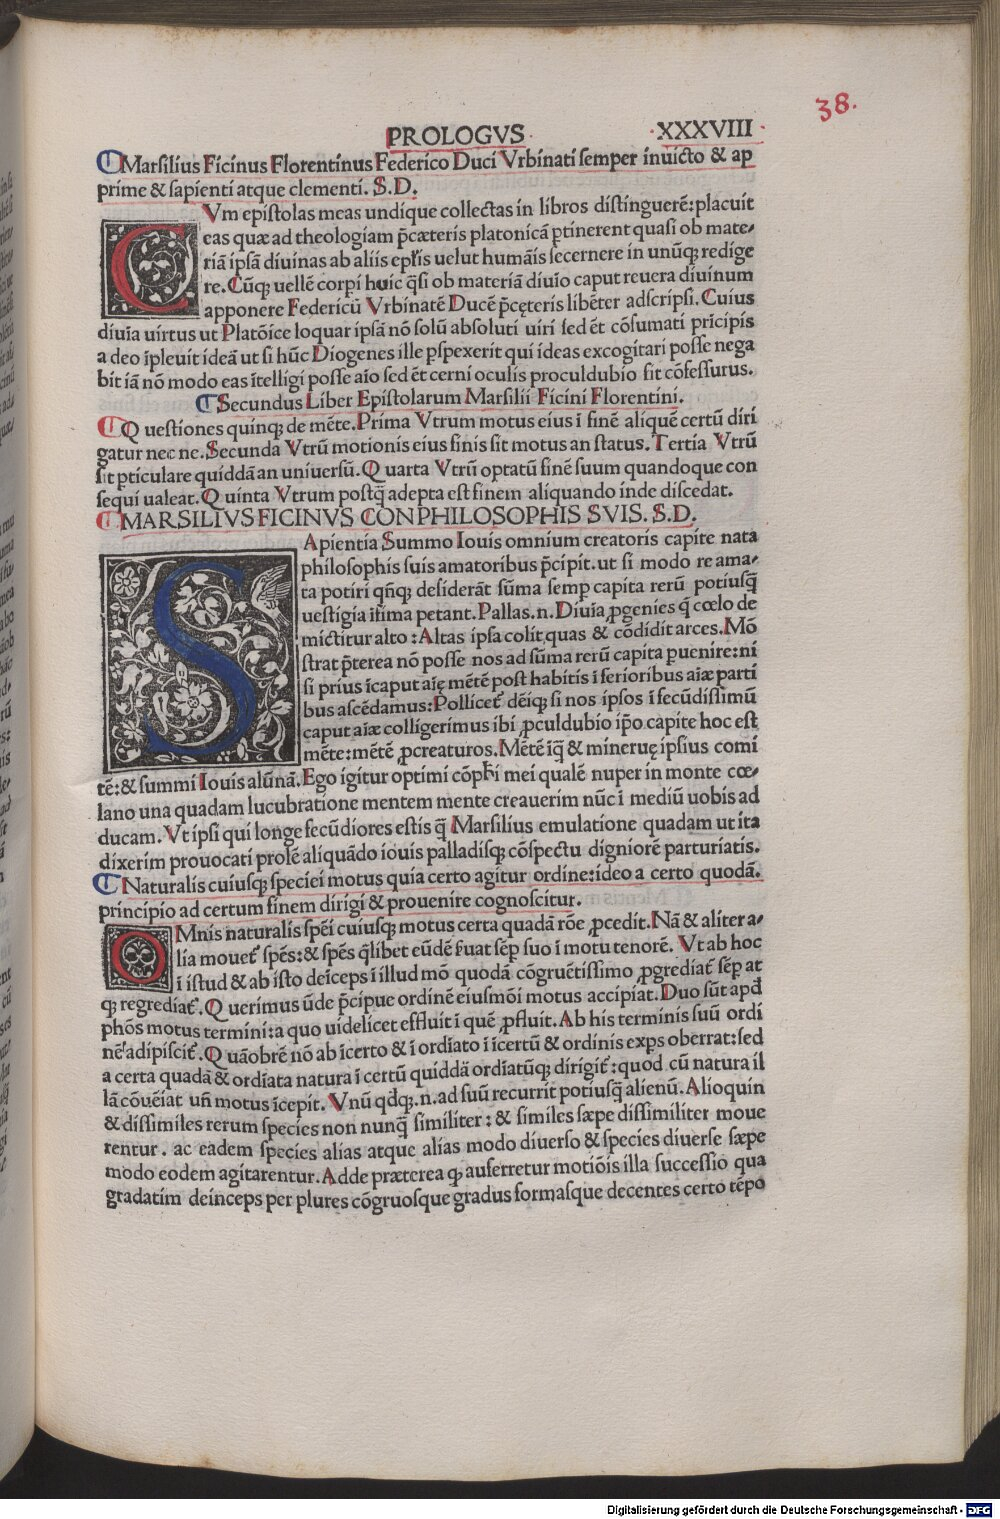 38.
PROLOGVS. .XXXVIII.
Marsilius Ficinus Florentinus Federico Duci Vrbinati semper inuicto & ap
prime & sapienti atque clementi. S.D.
CVm epistolas meas undique collectas in libros distinguerē: placuit
eas quæ ad theologiam p̄cæteris platonicā ꝑtinerent quasi ob mate-
riā ipsā diuinas ab aliis epl̄is uelut humāis secernere in unūqꝫ redige
re. Cūqꝫ uellē corpi huic q̄si ob materiā diuīo caput reuera diuinum
apponere Federicū Vrbinatē Ducē p̄cęteris libēter adscripsi. Cuius
diuīa uirtus ut Platōice loquar ipsā nō solū absoluti uiri sed ēt cōsumati prīcipis
a deo īpleuit ideā ut si hūc Diogenes ille ꝑspexerit qui ideas excogitari posse nega
bit iā nō modo eas ītelligi posse aio sed ēt cerni oculis proculdubio sit cōfessurus.
Secundus Liber Epistolarum Marsilii Ficini Florentini.
Questiones quinqꝫ de mēte. Prima Vtrum motus eius ī finē aliquē certū diri
gatur nec ne. Secunda Vtrū motionis eius finis sit motus an status. Tertia Vtrū
sit ꝑticulare quiddā an uniuersū. Quarta Vtrū optatū finē suum quandoque con
sequi ualeat. Quinta Vtrum postq̄ adepta est finem aliquando inde discedat.
MARSILIVS FICINVS CONPHILOSOPHIS SVIS. S.D.
SApientia Summo Iouis omnium creatoris capite nata
philosophis suis amatoribus p̄cipit. ut si modo re ama-
ta potiri qn̄qꝫ desiderāt sūma semꝑ capita rerū potiusq̄
uestigia ifīma petant. Pallas .n. Diuīa ꝓgenies q̄ cœlo de
mictitur alto: Altas ipsa colit quas & cōdidit arces. Mō
strat p̄terea nō posse nos ad sūma rerū capita ꝑuenire: ni
si prius īcaput aię mētē post habitis īferioribus aiæ parti
bus ascēdamus: Pollicet̄ dēiqꝫ si nos ipsos ī fecūdissimū
caput aiæ colligerimus ibi ꝓculdubio ip̄o capite hoc est
mēte: mētē ꝓcreaturos. Mētē īqꝫ & mineruę ipsius comi
tē: & summi Iouis alūnā. Ego igitur optimi cōphi mei qualē nuper in monte cœ-
lano una quadam lucubratione mentem mente creauerim nūc ī mediū uobis ad
ducam. Vt ipsi qui longe fecūdiores estis q̄ Marsilius emulatione quadam ut ita
dixerim prouocati prolē aliquādo iouis palladisqꝫ cōspectu digniorē parturiatis.
Naturalis cuiusqꝫ speciei motus quia certo agitur ordine: ideo a certo quodā.
principio ad certum finem dirigi & prouenire cognoscitur.
OMnis naturalis spēi cuiusqꝫ motus certa quadā rōe ꝓcedit. Nā & aliter a-
lia mouet̄ spēs: & spēs q̄libet eūdē ẜuat sēꝑ suo ī motu tenorē. Vt ab hoc
ī istud & ab isto deīceps ī illud mō quodā cōgruētissimo ꝓgrediat̄ sēꝑ at
qꝫ regrediat̄. Querimus ūde p̄cipue ordinē eiusmōi motus accipiat. Duo sūt apd̄
phōs motus termini: a quo uidelicet effluit ī quē ꝓfluit. Ab his terminis suū ordi
nē adipiscit̄. Quāobrē nō ab īcerto & ī ordīato ī īcertū & ordinis exꝑs oberrat: sed
a certa quadā & ordīata natura ī certū quiddā ordīatūqꝫ dirigit̄: quod cū natura il
lā cōuēiat uñ motus īcepit. Vnū qd̄qꝫ .n. ad suū recurrit potiusq̄ alienū. Alioquin
& dissimiles rerum species non nunq̄ similiter: & similes sæpe dissimiliter moue
rentur. ac eadem species alias atque alias modo diuerso & species diuerse sæpe
modo eodem agitarentur. Adde præterea qꝫ auferretur motiōis illa successio qua
gradatim deinceps per plures cōgruosque gradus formasque decentes certo tēpo
Digitalisierung gefördert durch die Deutsche Forschungsgemeinschaft - DFG